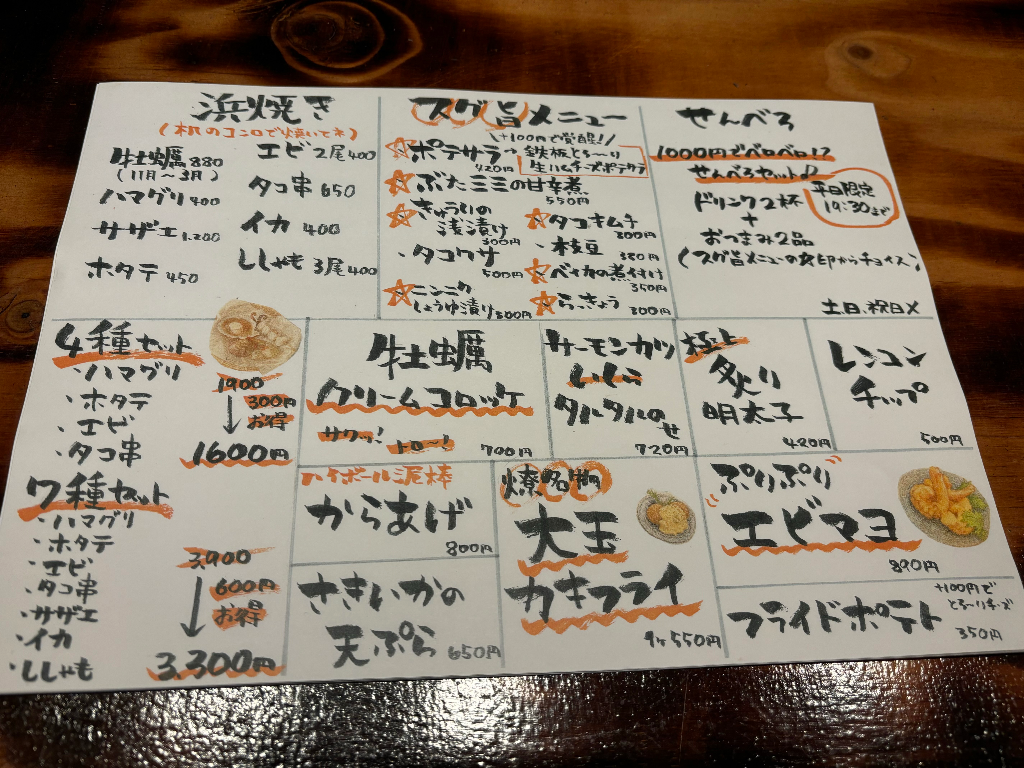 浜焼き
(机のコンロで焼いてネ)
牡蠣 880
(11月〜3月)
ハマグリ 400
サザエ 1.200
ホタテ 450
エビ 2尾 400
タコ串 650
イカ 400
ししゃも 3尾 400
スグ旨メニュー
\+100円で覚醒!/
☆ポテサラ→
420円
鉄板とろ〜り
生ハムチーズポテサラ
☆ぶたミミの甘辛煮
550円
☆きゅうりの
浅漬け
300円
・タコワサ
500円
☆ニンニク
しょうゆ漬け 300円
☆タコキムチ
300円
・枝豆
350円
☆ベイカの煮付け
350円
☆らっきょう
300円
せんべろ
1000円でベロベロ!?
せんべろセット
平日限定
19:30まで
ドリンク2杯
+
おつまみ2品
(スグ旨メニューの☆印からチョイス)
土日、祝日×
4種セット
・ハマグリ
・ホタテ
・エビ
・タコ串
1900
↓
300円
お得
1600円
7種セット
・ハマグリ
・ホタテ
・エビ
・タコ串
・サザエ
・イカ
・ししゃも
3,900
↓
600円
お得
3.300円
牡蠣
クリームコロッケ
サクッ! トロ〜!
700円
サーモンカツ
いくら
タルタルのせ
720円
極上
炙り
明太子
420円
レンコン
チップ
500円
ハイボール泥棒
からあげ
800円
さきいかの
天ぷら
650円
大玉
カキフライ
1ケ 550円
ぷりぷり
エビマヨ
890円
フライドポテト
+100円で
とろ〜りチーズ
350円